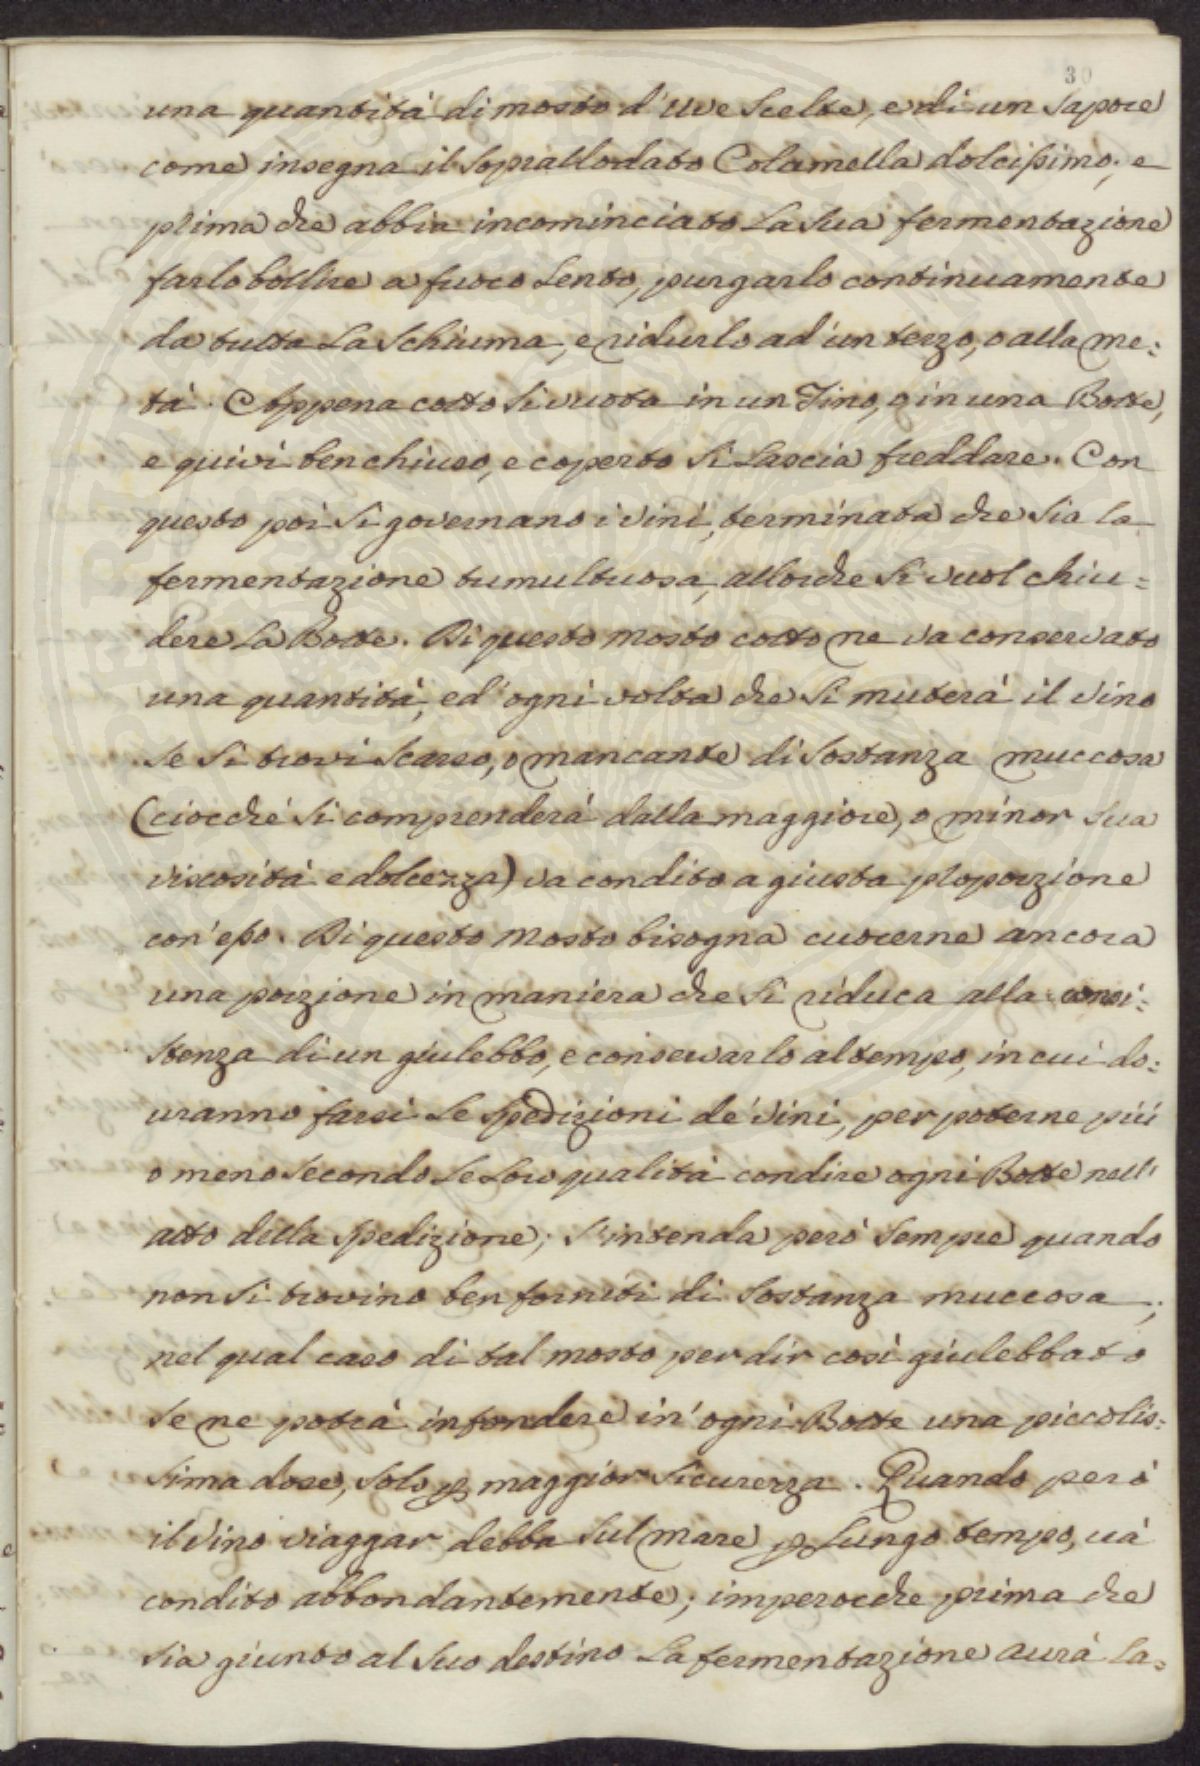 30
una quantità di mosto d'uve scelte, e di un sapore
come insegna il soprallodato Colamella dolcissimo; e
prima che abbia incominciato la sua fermentazione
farlo bollire a fuoco lento, purgarlo continuamente
da tutta la schiuma, e ridurlo ad'un terzo, o alla me:
tà. Appena cotto si vuota in un Tino, o in una Botte,
e quivi ben chiuso, e coperto si lascia freddare. Con
questo poi si governano i vini, terminata che sia la
fermentazione tumultuosa, allorche si vuol chiu=
dere la Botte. Di questo mosto cotto ne va conservato
una quantità, ed'ogni volta che si muterà il vino
se si trovi scarso, o mancante di sostanza muccosa
(ciocché si comprenderà dalla maggiore, o minor sua
viscosità e dolcezza) va condito a giusta proporzione
con'esso. Di questo mosto bisogna cuocerne ancora
una porzione in maniera che si riduca alla consi:
stenza di un giulebbo, e conservarlo al tempo, in cui do:
uranno farsi le spedizioni de' vini, per poterne più
o meno secondo le loro qualità condire ogni Botte nell'
atto della spedizione; s'intenda però sempre quando
non si trovino ben forniti di sostanza muccosa;
nel qual caso di tal mosto per dir così giulebbato
se ne potrà infondere in'ogni Botte una piccolis:
sima dose, solo p maggior sicurezza. Quando però
il vino viaggar debba sul mare p lungo tempo, uà
condito abbondantemente; imperocche prima che
sia giunto al suo destino la fermentazione aurà la=